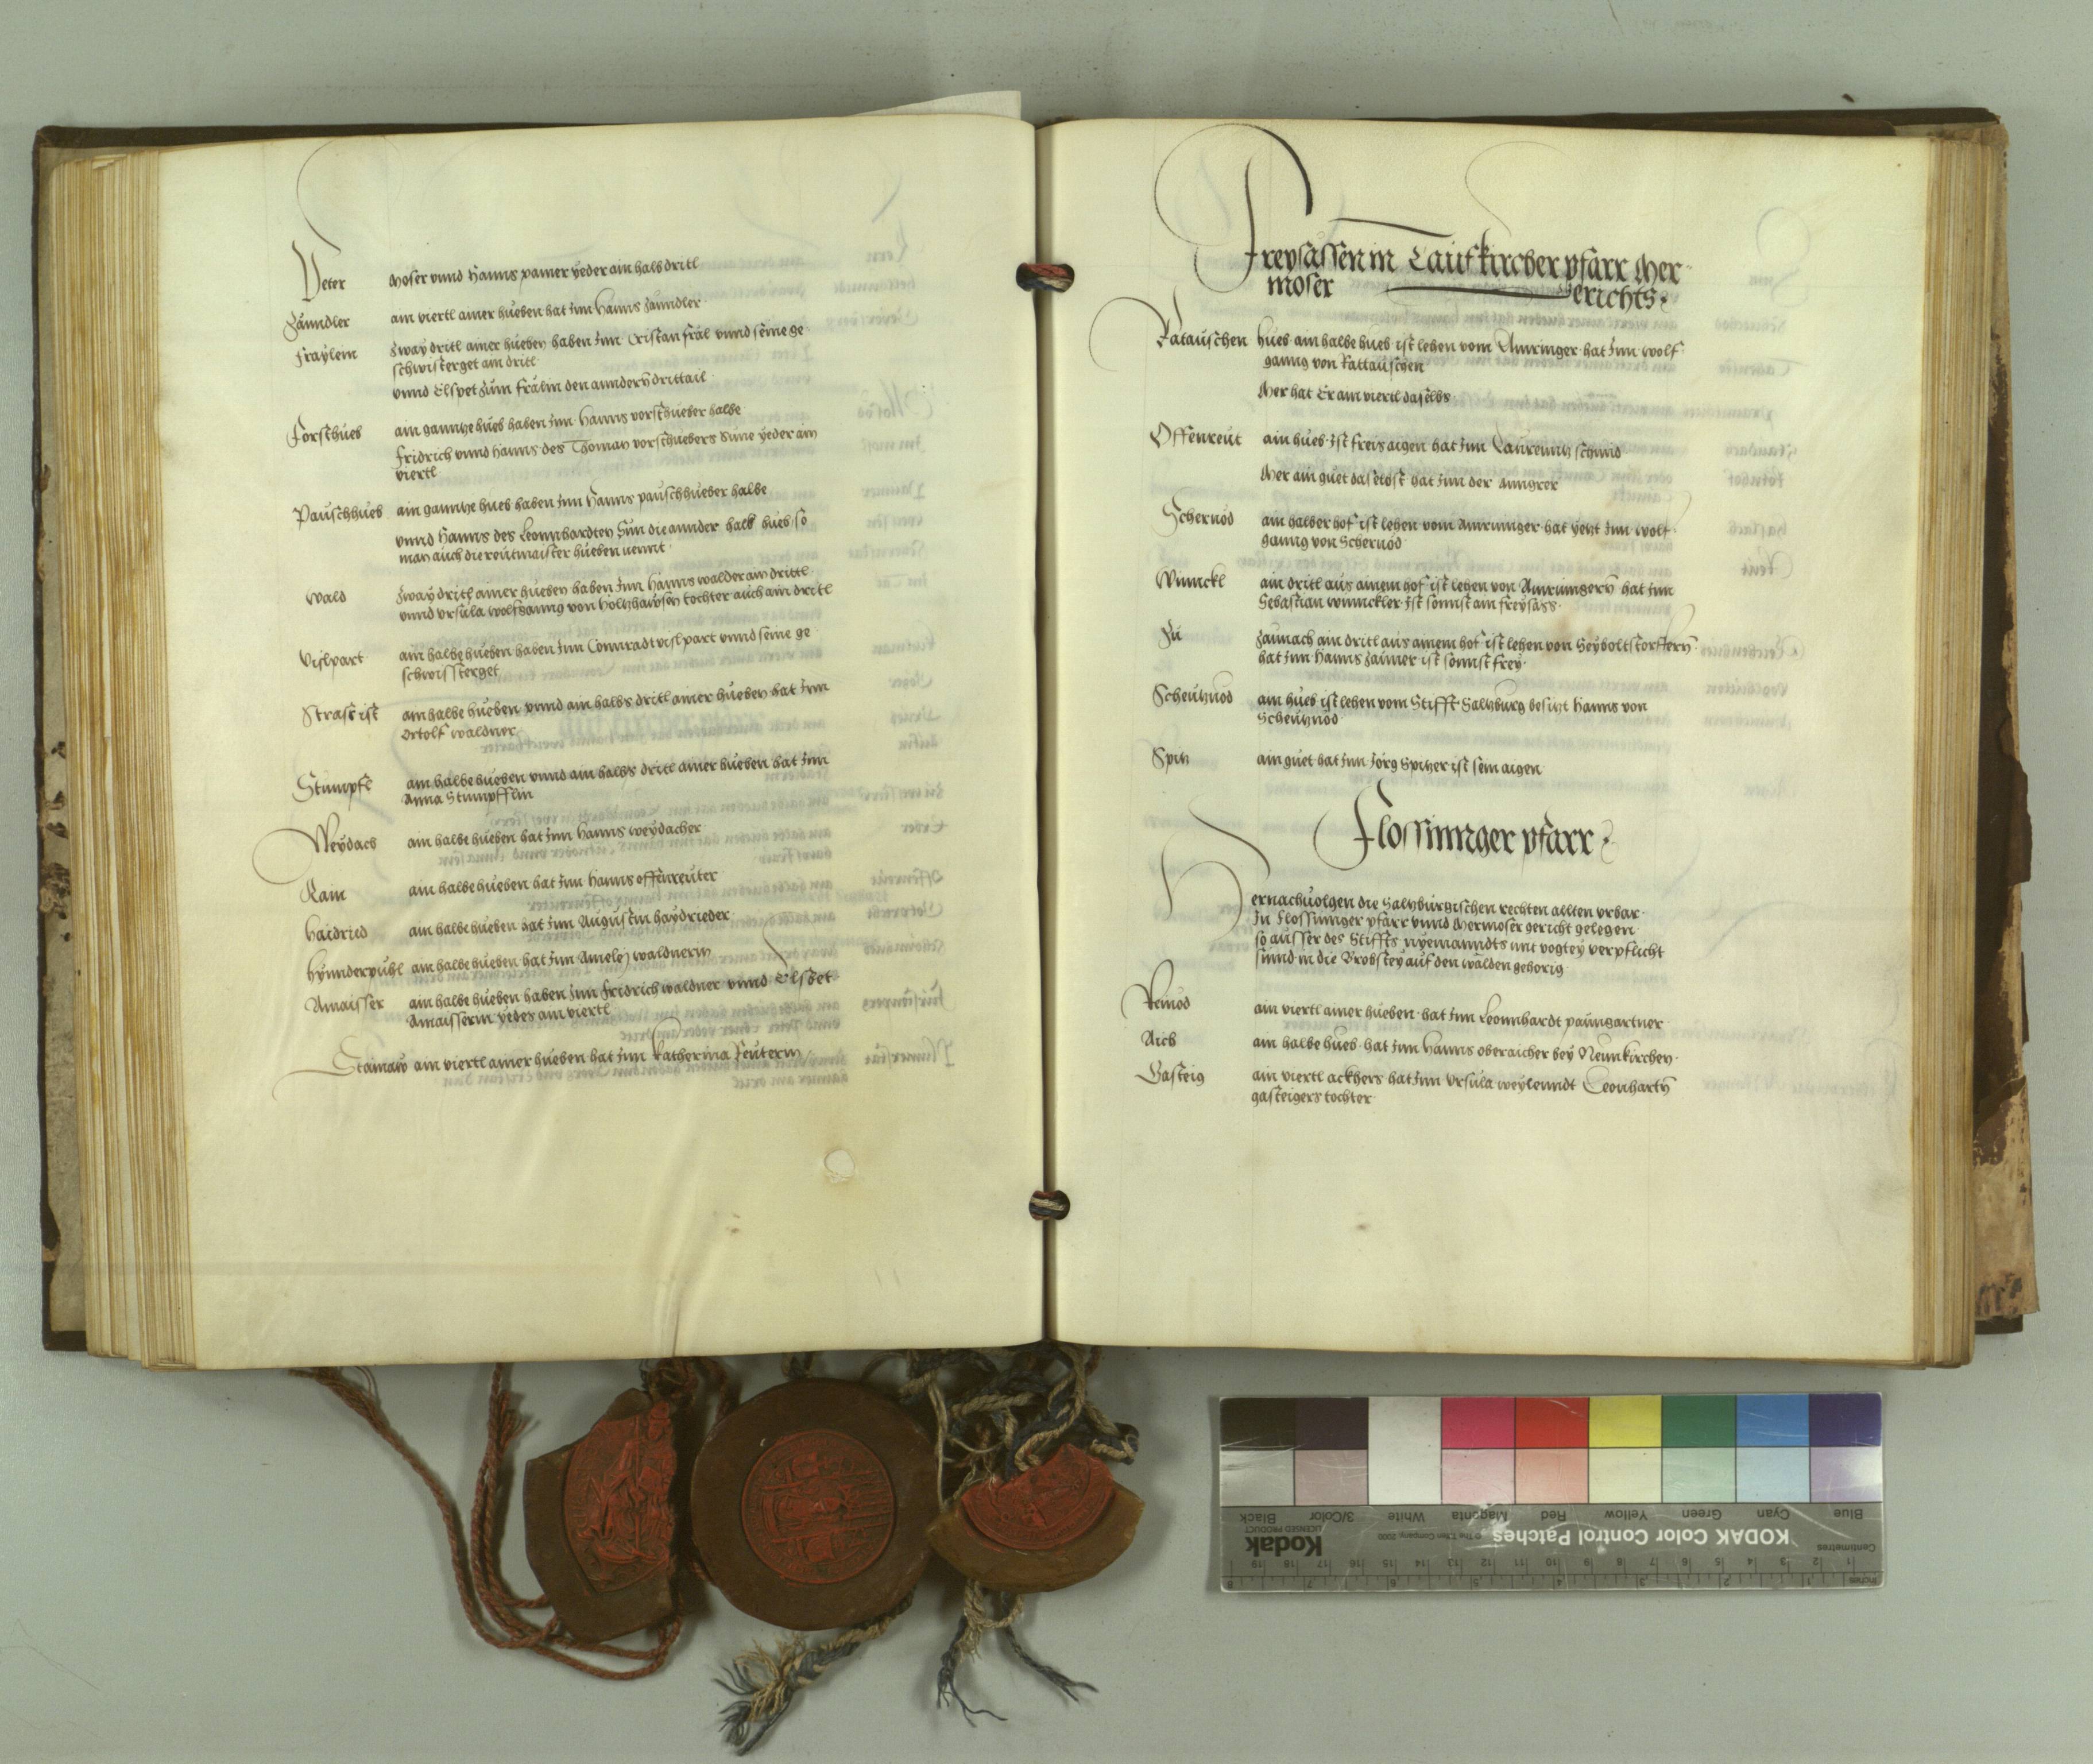 Peter Moser vnnd Hanns pamer yeder ain halb dritl
Zänndler ain viertl ainer hueben hat Inn Hanns Zänndler
Fraylein Zway dritl ainer hueben haben Inn Cristan fräl vnnd seine ge
schwistterget ain dritl
vnnd Elspet Zum frälin den anndern drittail
Forsthueb ain ganntze hueb haben Inn Hanns vorsthueber halbe
Fridrich vnnd Hanns des Thoman vorsthuebers Süne yeder ain
viertl
Pauschhueb ain ganntze hueb haben Inn Hanns pauschhueber halbe
vnnd Hanns des Leonnhardten Sün die annder halb hueb so
man auch die reutmaister hueben nennt
Wald Zway dritl ainer hueben haben Inn Hanns walder ain drittl
vnnd Vrsula wolfganng von holtzhawsen tochter auch ain dritl
Vislpart ain halbe hueben haben Inn Connradt vislpart vnnd seine ge
schwissterget
Strass ist ain halbe hueben vnnd ain halbs dritl ainer hueben hat Inn
Ortolf waldner
Stümpfl ain halbe hueben vnnd ain halbs dritl ainer hueben hat Inn
Anna Stumpfflin
Weydach ain halbe hueben hat Inn Hanns weydacher
Rain ain halbe hueben hat Inn Hanns offenreuter
Haidried ain halbe hueben hat Inn Augustin haydrieder
Hynnderpuhl ain halbe hueben hat Inn Amaley waldnerin
Amaisser ain halbe hueben haben Inn Fridrich waldner vnnd Elsbet
Amaisserin yedes ain viertl
Stainaw ain viertl ainer hueben hat Inn Katherina Reuterin
Freysässen in Taufkircher pfarr Mer
moser Gerichts
Ratauschen hueb ain halbe hueb ist lehen vom Amringer hat Inn wolf
ganng von Rattauschen
Mer hat Er ain viertl daselbs
Offenreut ain hueb Ist freis aigen hat Inn Laurenntz schmid
Mer ain guet daselbst hat Inn der Anngrer
Schernöd ain halber hof ist lehen vom Amringer hat yetzt Inn wolf
ganng von Schernöd
Winnckl ain dritl aus ainem hof ist lehen von Amringern hat Inn
Sebastian winnckler Ist sonnst ain freysäss
Zu Zaunach ain dritl aus ainem hof ist lehen von Seyboltstorffern
hat Inn Hanns Zauner ist sonnst frey
Scheuhnöd ain hueb ist lehen vom Stifft Saltzburg besitzt Hanns von
Scheuhnöd
Spitz ain guet hat Inn Jorg Spitzer ist sein aigen
Flossinnger pfarr
Hernachuolgen die Saltzburgischen rechten allten vrbar
In Flossinnger pfarr vnnd Mermoser gericht gelegen
so ausser des Stiffts nyemanndts mit vogtey verpflicht
sunnd in die Brobstey auf den wälden gehorig
Reinöd ain viertl ainer hueben hat Inn Leonnhardt paumgartner
Aich ain halbe hueb hat Inn Hanns oberaicher bey Neunkirchen
Gasteig ain viertl ackhers hat Inn Vrsula weylenndt Leonhartn
gasteigers tochter
KODAK Color Control Patches
Kodak
LICENSED PRODUCT
© The Tiffen Company, 2000
Blue Cyan Green Yellow Red Magenta White 3/Color Black
Centimetres
Inches